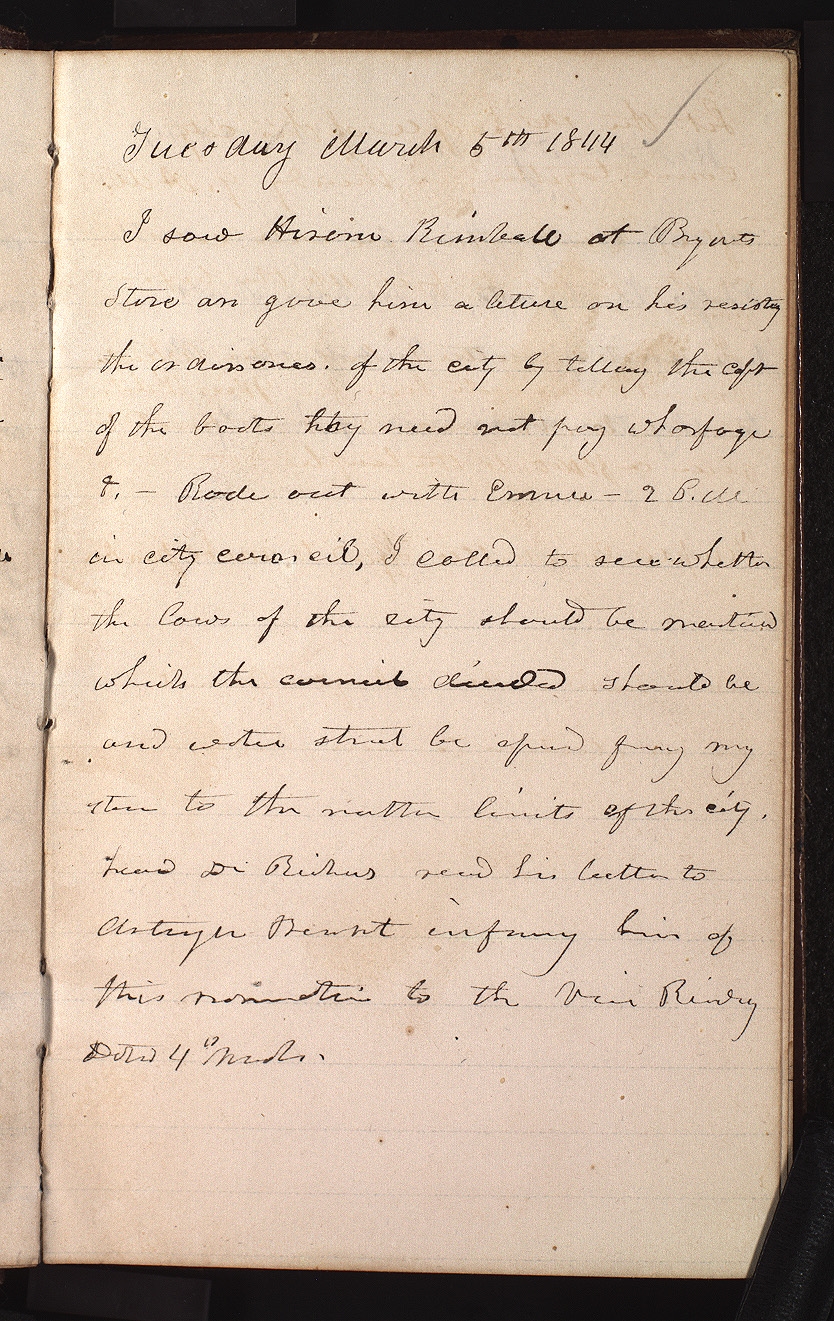 Tuesday March 5th 1844
I saw Hiram Kimball at Bryants
Store an gave him a leture on his resistig
the ordinances. of the city by telling the capt
of the boats they need not pay wharfage
&. — Rode out with Emma — 2 P.M
in city council, I called to see whether
the laws of the city should be
which the council decided should be
and water street be my
to the limits of the city.
head Dr Richards read his letter to
him of
this to the Vice
4th